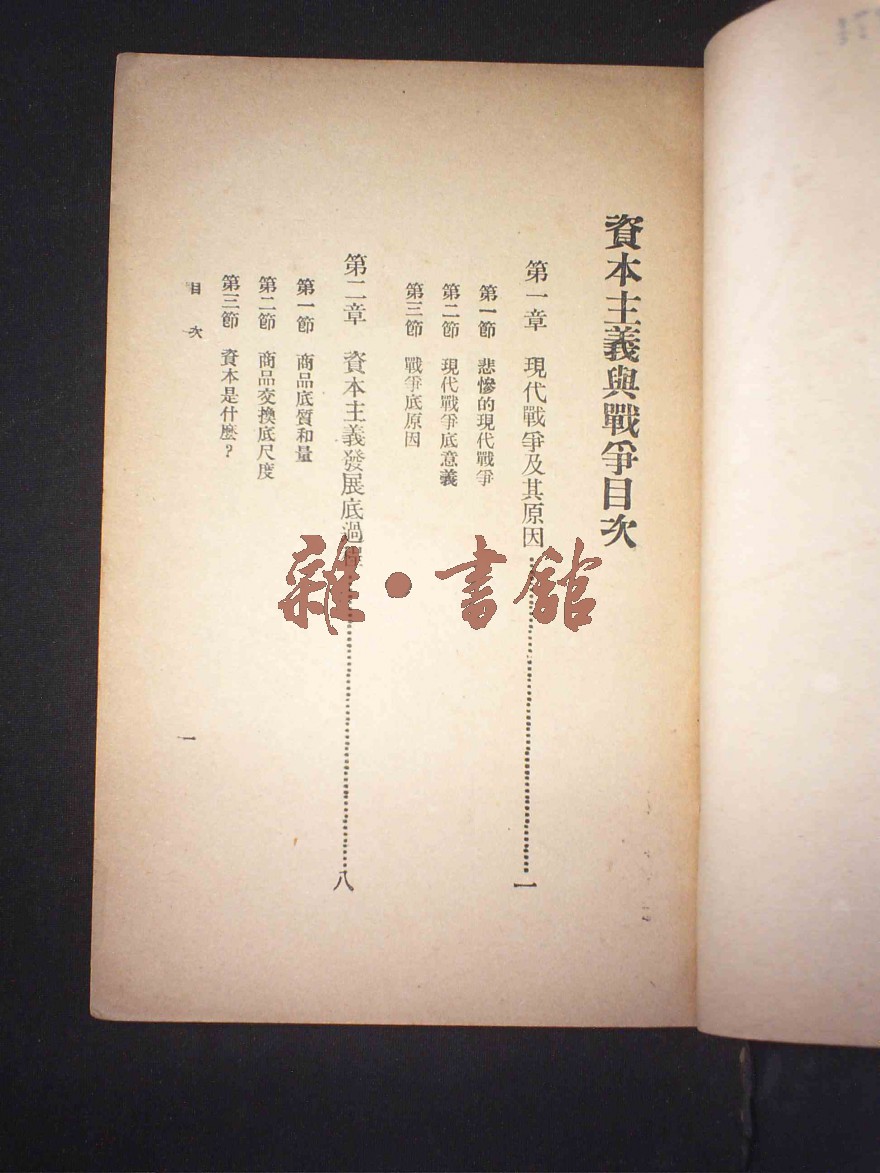 資本主義與戰爭目次
第一章 現代戰爭及其原因……………………一
第一節 悲慘的現代戰爭
第二節 現代戰爭底意義
第三節 戰爭底原因
第二章 資本主義發展底過程……………………八
第一節 商品底質和量
第二節 商品交換底尺度
第三節 資本是什麼?
目次 一
雜·書館